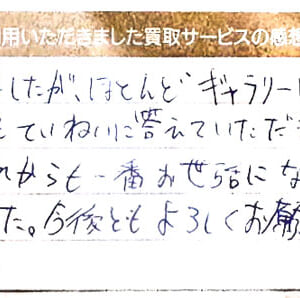 用いただきました買取サービスの感想
したが、ほとんど ギャラリー
ていねいに答えていただ
からも一番お世話にな
た。今後ともよろしくお願